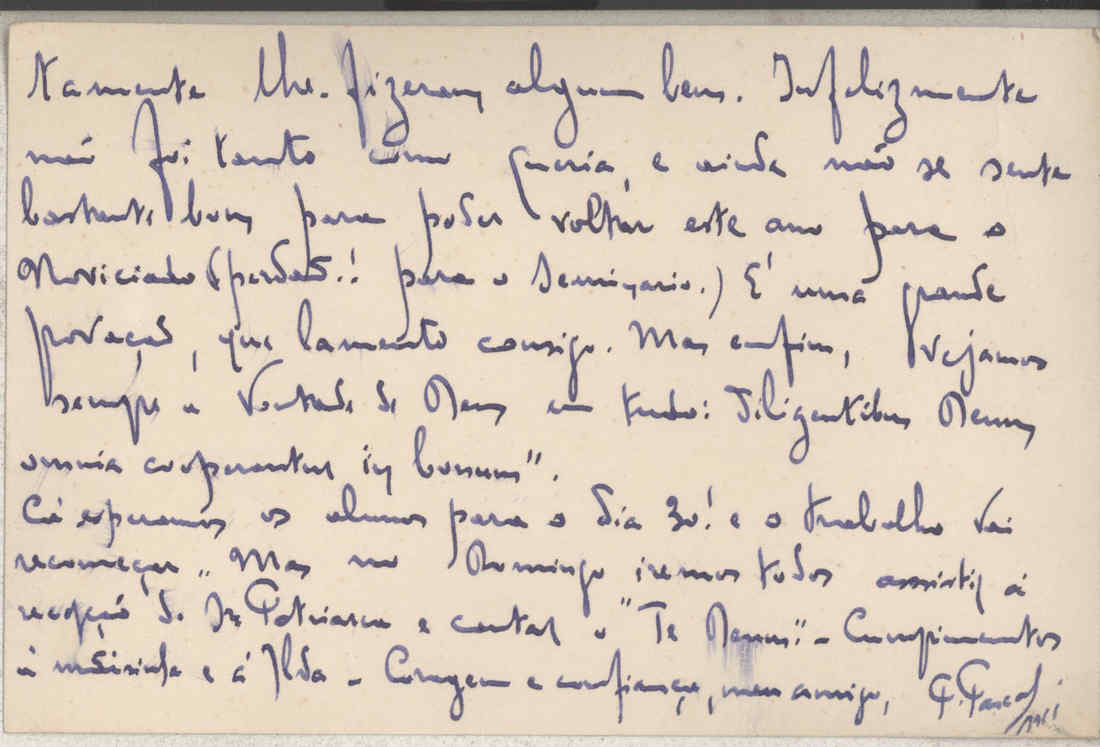 tamente lhe fizeram algum bem. Infelizmente
não foi tanto como queria, e ainda não se sente
bastante bom para poder voltar este ano para o
Noviciado (perdão!! para o Seminario.) É uma grande
provação, que lamento consigo. Mas enfim, vejamos
sempre a Vontade de Deus em tudo: Diligentibus Deum
omnia cooperantur in bonum".
Cá esperamos os alunos para o dia 30! e o trabalho vai
recomeçar.. Mas no Domingo iremos todos assistir á
recepção do Sr. Patriarca e cantar o "Te Deum" - Cumprimentos
á mãisinha e á Ilda - Coragem e confiança, meu amigo, P. Pascal